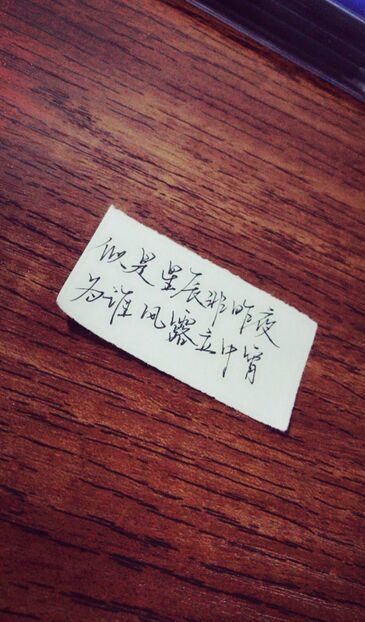 似是星辰非昨夜
为谁风露立中宵